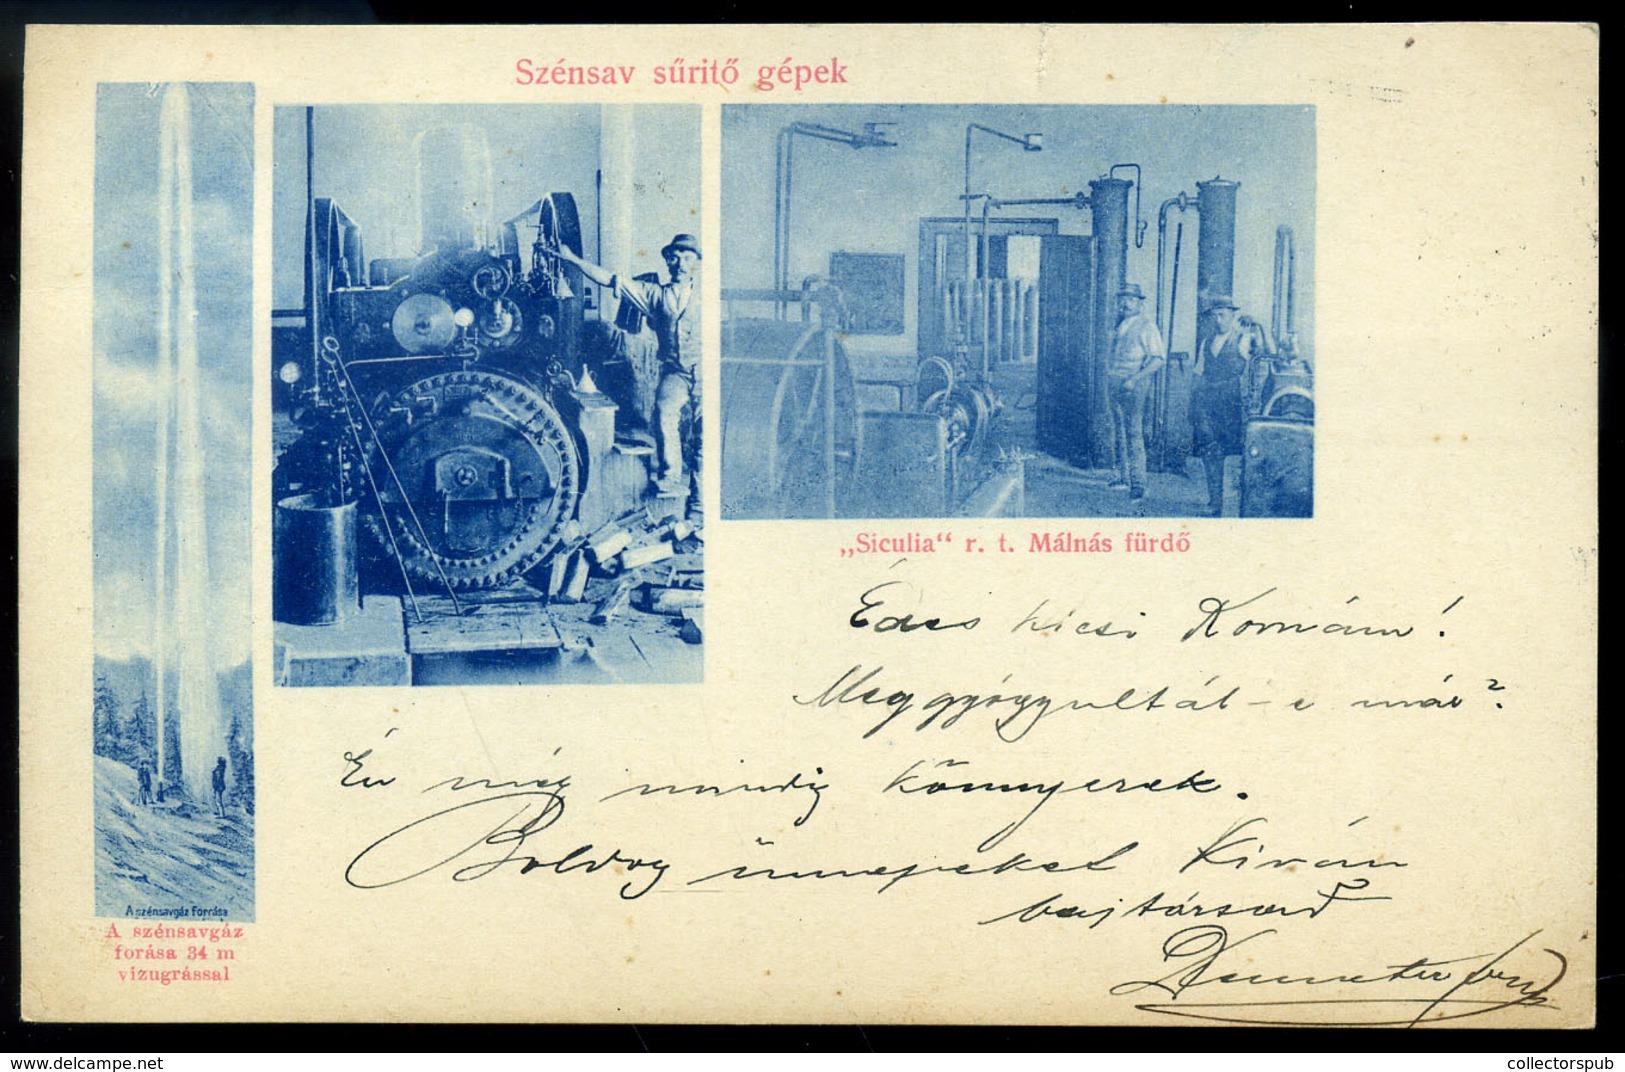 Szénsav sűritő gépek
„Siculia“ r. t. Málnás fürdő
A szénsavgáz forrása
A szénsavgáz
forása 34 m
vizugrással
Édes kicsi Komám!
Meggyógyultál-e már?
Én még mindig könnyezek.
Boldog ünnepeket kíván
bajtársad
Demeter
www.delcampe.net
collectorspub